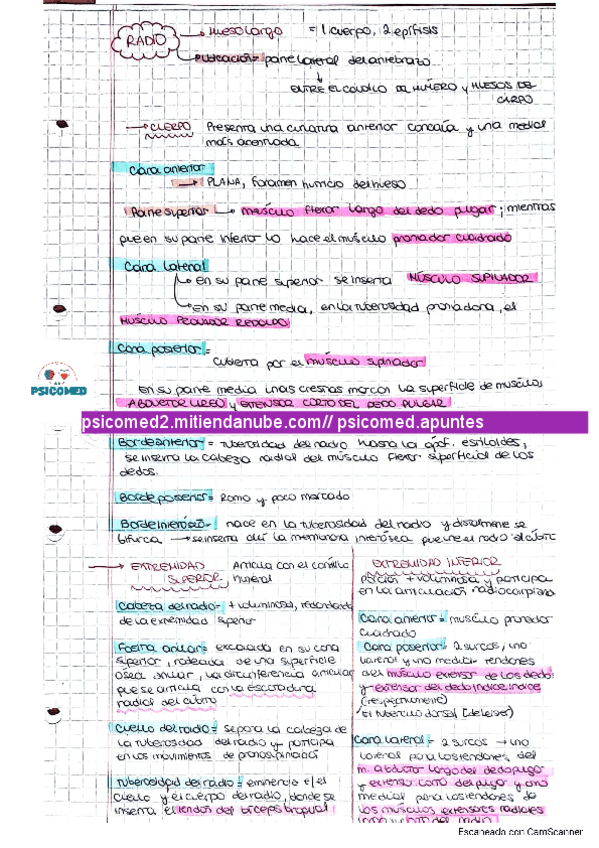 RADIO
→ Hueso largo = 1 cuerpo, 2 epífisis
Ubicación = parte lateral del antebrazo
ENTRE EL CÓNDILO DE HÚMERO y HUESOS DEL
CARPO
→ CUERPO Presenta una curvatura anterior concava y una medial
más acentuada
Cara anterior
→ PLANA, foramen nutricio del hueso
Parte superior → músculo flexor largo del dedo pulgar; mientras
que en su parte inferior lo hace el músculo pronador cuadrado
Cara lateral
→ en su parte superior se inserta MÚSCULO SUPINADOR
→ en su parte media, en la tuberosidad pronadora, el
MÚSCULO PRONADOR REDONDO
Cara posterior =
cubierta por el músculo supinador
En su parte media unas crestas marcan la superficie de músculos
ABDUCTOR LARGO y EXTENSOR CORTO DEL DEDO PULGAR
PSICOMED
psicomed2.mitiendanube.com// psicomed.apuntes
Borde anterior = tuberosidad del radio hasta la apóf. estiloides,
se inserta la cabeza radial del músculo flexor superficial de los
dedos.
Borde posterior = Romo y poco marcado
Borde interóseo = nace en la tuberosidad del radio y distalmente se
bifurca. → se inserta allí la membrana interósea que une el radio
→ EXTREMIDAD SUPERIOR Articula con el
humeral
Cabeza del radio = + voluminosa, redondeada
de la extremidad superior
Fosita anular = excavada en su cara
superior, rodeada de una superficie
ósea anular, la circunferencia articular
que se articula con la escotadura
radial del cúbito
Cuello del radio = separa la cabeza de
la tuberosidad del radio y participa
en los movimientos de pronosupinación
Tuberosidad del radio = eminencia e/el
cuello y el cuerpo del radio, donde se
inserta el tendón del bíceps braquial
EXTREMIDAD INFERIOR
porción + voluminosa y participa
en la articulación radiocarpiana
Cara anterior = músculo pronador
cuadrado
Cara posterior = 2 surcos, uno
lateral y uno medial tendones
del músculo extensor de los dedos
y extensor del dedo índice
(respectivamente)
✓ El tubérculo dorsal (de Lister)
Cara lateral = 2 surcos → uno
lateral para los tendones del
m. abductor largo del dedo pulgar
y extensor corto del pulgar y uno
medial para los tendones de
los músculos extensores radiales
Escaneado con CamScanner